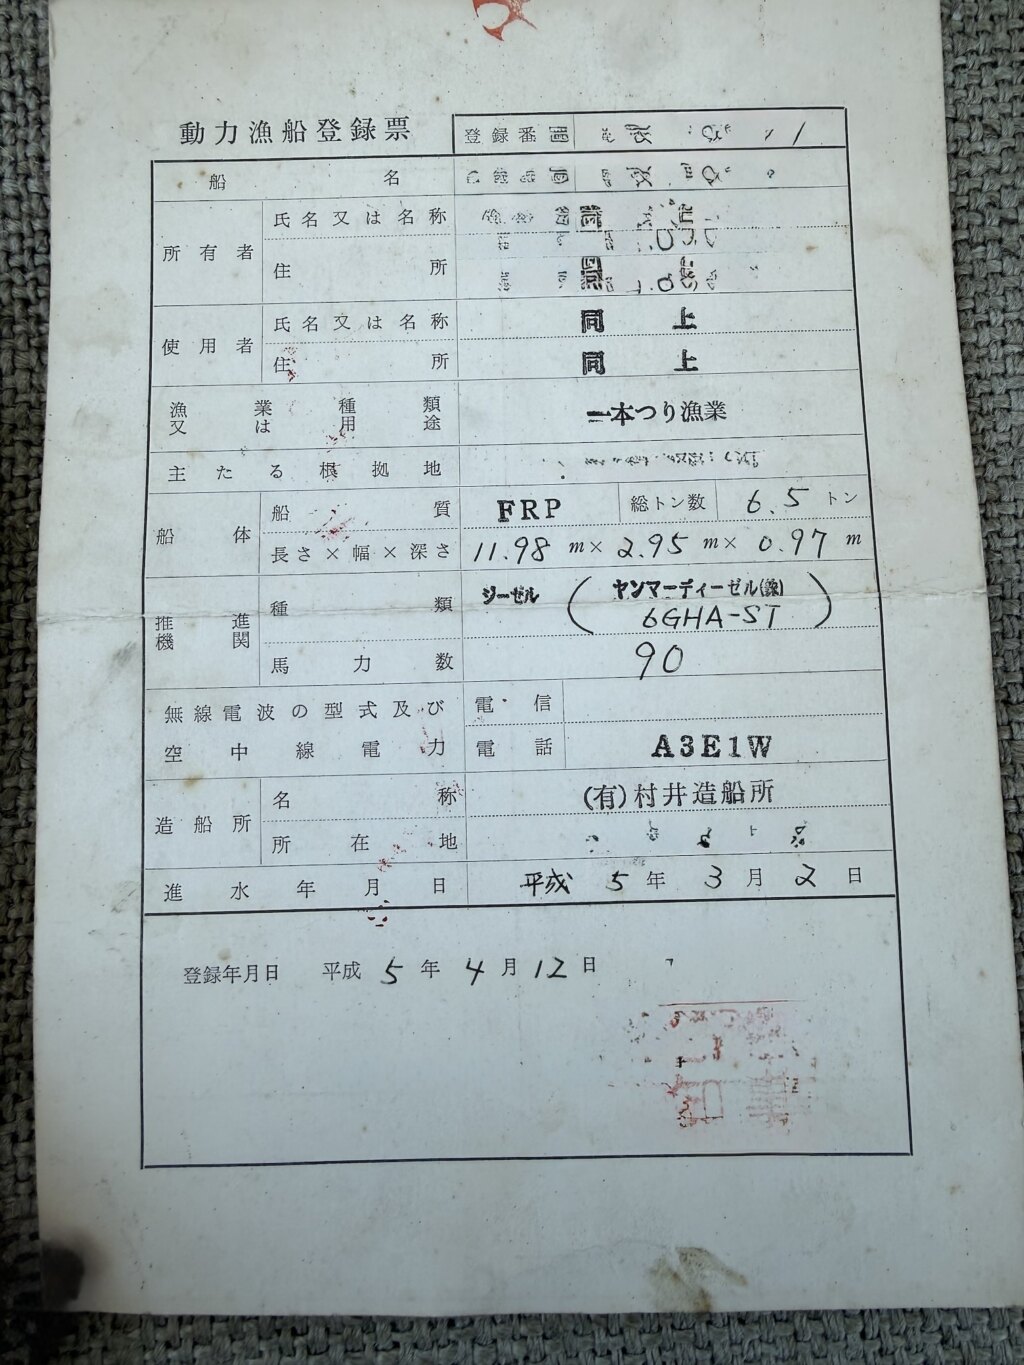 動力漁船登録票
登録番
船名
所有者
氏名又は名称
住所
使用者
氏名又は名称 同上
住所 同上
漁業種類
又は用途
一本つり漁業
主たる根拠地
船体
船質 FRP 総トン数 6.5 トン
長さ×幅×深さ 11.98 m× 2.95 m× 0.97 m
推進
機関
種類 ジーゼル (ヤンマーディーゼル(株)
6GHA-ST)
馬力数 90
無線電波の型式及び
空中線電力
電信
電話 A3E1W
造船所
名称 (有)村井造船所
所在地
進水年月日 平成 5 年 3 月 2 日
登録年月日 平成 5 年 4 月 12 日